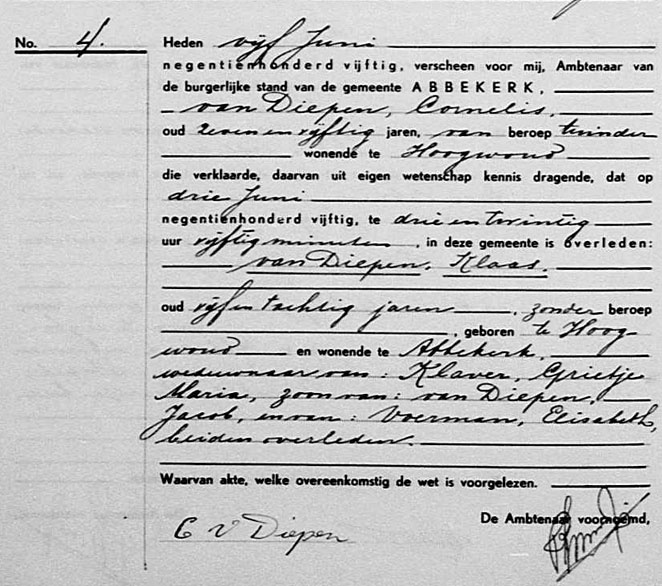 No. 4. Heden vijf Juni
negentienhonderd vijftig, verscheen voor mij, Ambtenaar van
de burgerlijke stand van de gemeente ABBEKERK,
van Diepen, Cornelis,
oud zeven en vijftig jaren, van beroep tuinder
wonende te Hoogwoud
die verklaarde, daarvan uit eigen wetenschap kennis dragende, dat op
drie Juni
negentienhonderd vijftig, te drie en twintig
uur vijftig minuten, in deze gemeente is overleden:
van Diepen, Klaas.
oud vijf en tachtig jaren, zonder beroep
, geboren te Hoog-
woud en wonende te Abbekerk,
weduwnaar van: Klaver, Grietje
Maria, zoon van: van Diepen,
Jacob, en van: Voerman, Elisabeth,
beiden overleden.
Waarvan akte, welke overeenkomstig de wet is voorgelezen.
De Ambtenaar voornoemd,
C v Diepen